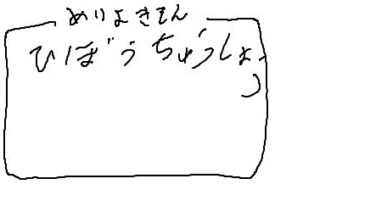 めりよきまん
ひぼうちゅうしょ
う